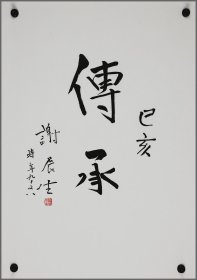 己亥
傳承
謝辰生
時年九十八